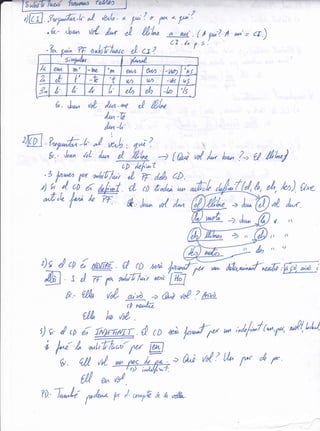 Substitució Pronoms Febles
1) CI. Preguntar-li al verb: a qui? o per a qui?
Ex: Joan vol dur el llibre a mi. (A qui? A mi = CI)
CI
En quin PF substituesc el CI?
Singular plural
1a em m' -me 'm ens ens -nos 'ns
2a et t' -te 't us us -us
3a li li li els els -los 'ls
Ex. Joan vol dur-me el llibre
dur-te
dur-li
2) CD. Preguntar-li al verb: què?
Ex: Joan vol dur el llibre → (Què vol dur Joan? → El llibre)
CD definit
3 formes per substituir el PF dels CD.
a) Si el CD és definit. El CD tindrà un article definit (el, la, els, les)
article farà de PF.
Ex. Joan vol dur el llibre → Joan el vol dur.
la moto → Joan la " "
els llibres → " els " "
les motos → " les " "
2) Si el CD és NEUTRE. El CD serà format per un determinant neutre: açò, això i
allò. I el PF per substituir serà Ho
Ex: Ella vol això → Què vol? Això
CD neutre
Ella ho vol.
3) Si el CD és INDEFINIT. El CD serà format per un indefinit
i farà la substitució per En
Ex. Ell vol un poc de pa → Què vol? Un poc de pa.
CD indefinit.
Ell en vol.